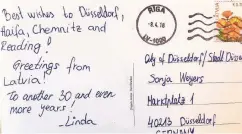 Best wishes to Düsseldorf,
Haifa, Chemnitz and
Reading!
Greetings from
Latvia!
To another 30 and even
more years!
-Linda
RIGA
-9.4.18
LV-1000
City of Düsseldorf/Stadt Düss
Sonja Weyers
Marktplatz 1
40213 Düsseldorf
GERMANY